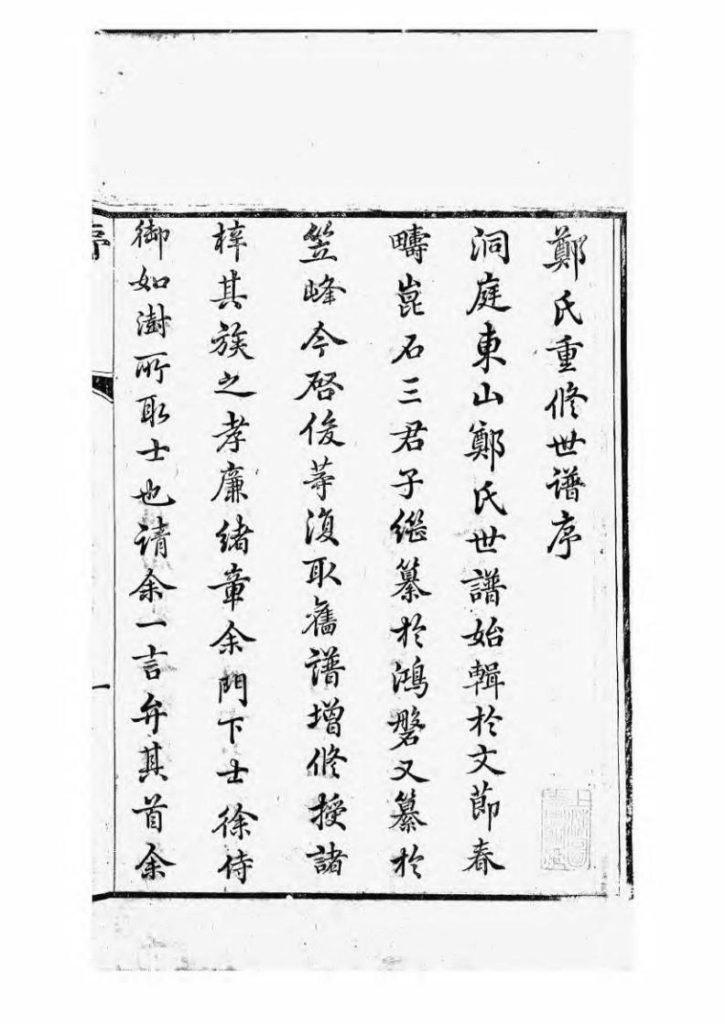 鄭氏重修世譜序
洞庭東山鄭氏世譜始輯於文節春
疇崑石三君子繼纂於鴻磐又纂於
笠峰今啓俊等復取舊譜增修授諸
梓其族之孝廉緒章余門下士徐侍
御如澍所取士也請余一言弁其首余
序
一